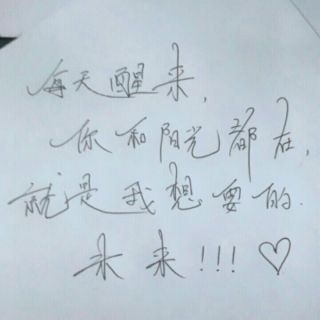 每天醒来,
你和阳光都在,
就是我想要的.
未来!!! ♡